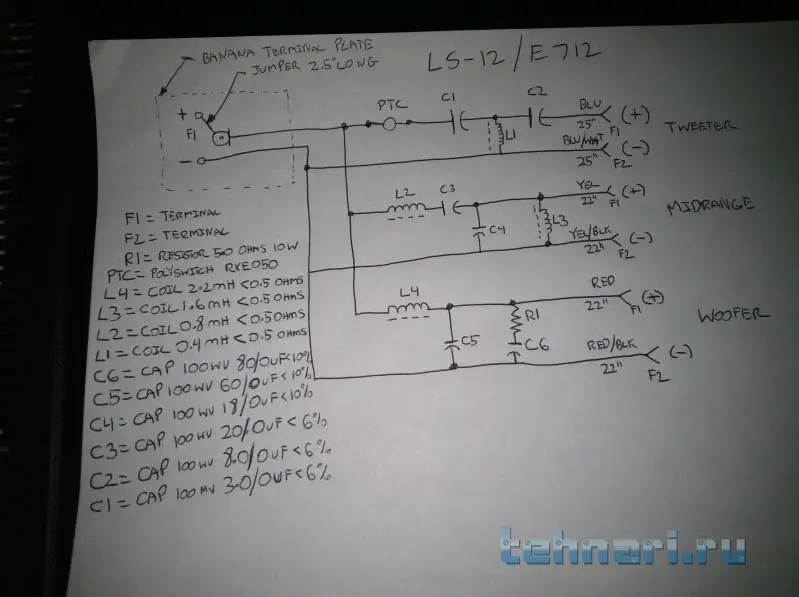 BANANA TERMINAL PLATE
JUMPER 2.5" LONG
LS-12/E712
+
F1
-
PTC
C1
C2
L1
BLU
25"
F1
(+)
BLU/WHT
25"
F2
(-)
TWEETER
L2
C3
C4
L3
YEL
22"
F1
(+)
YEL/BLK
22"
F2
(-)
MIDRANGE
L4
C5
R1
C6
RED
22"
F1
(+)
RED/BLK
22"
F2
(-)
WOOFER
F1 = TERMINAL
F2 = TERMINAL
R1 = RESISTOR 50 OHMS 10W
PTC = POLYSWITCH RXE050
L4 = COIL 2.2mH <0.5 OHMS
L3 = COIL 1.6mH <0.5 OHMS
L2 = COIL 0.8mH <0.5 OHMS
L1 = COIL 0.4mH <0.5 OHMS
C6 = CAP 100WV 80/0UF<10%
C5 = CAP 100WV 60/0UF<10%
C4 = CAP 100WV 18/0UF<10%
C3 = CAP 100WV 20/0UF<6%
C2 = CAP 100WV 8.0/0UF<6%
C1 = CAP 100MV 3.0/0UF<6%
tehnari.ru